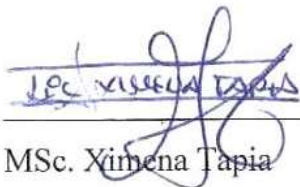 XIMENA TAPIA
MSc. Ximena Tapia